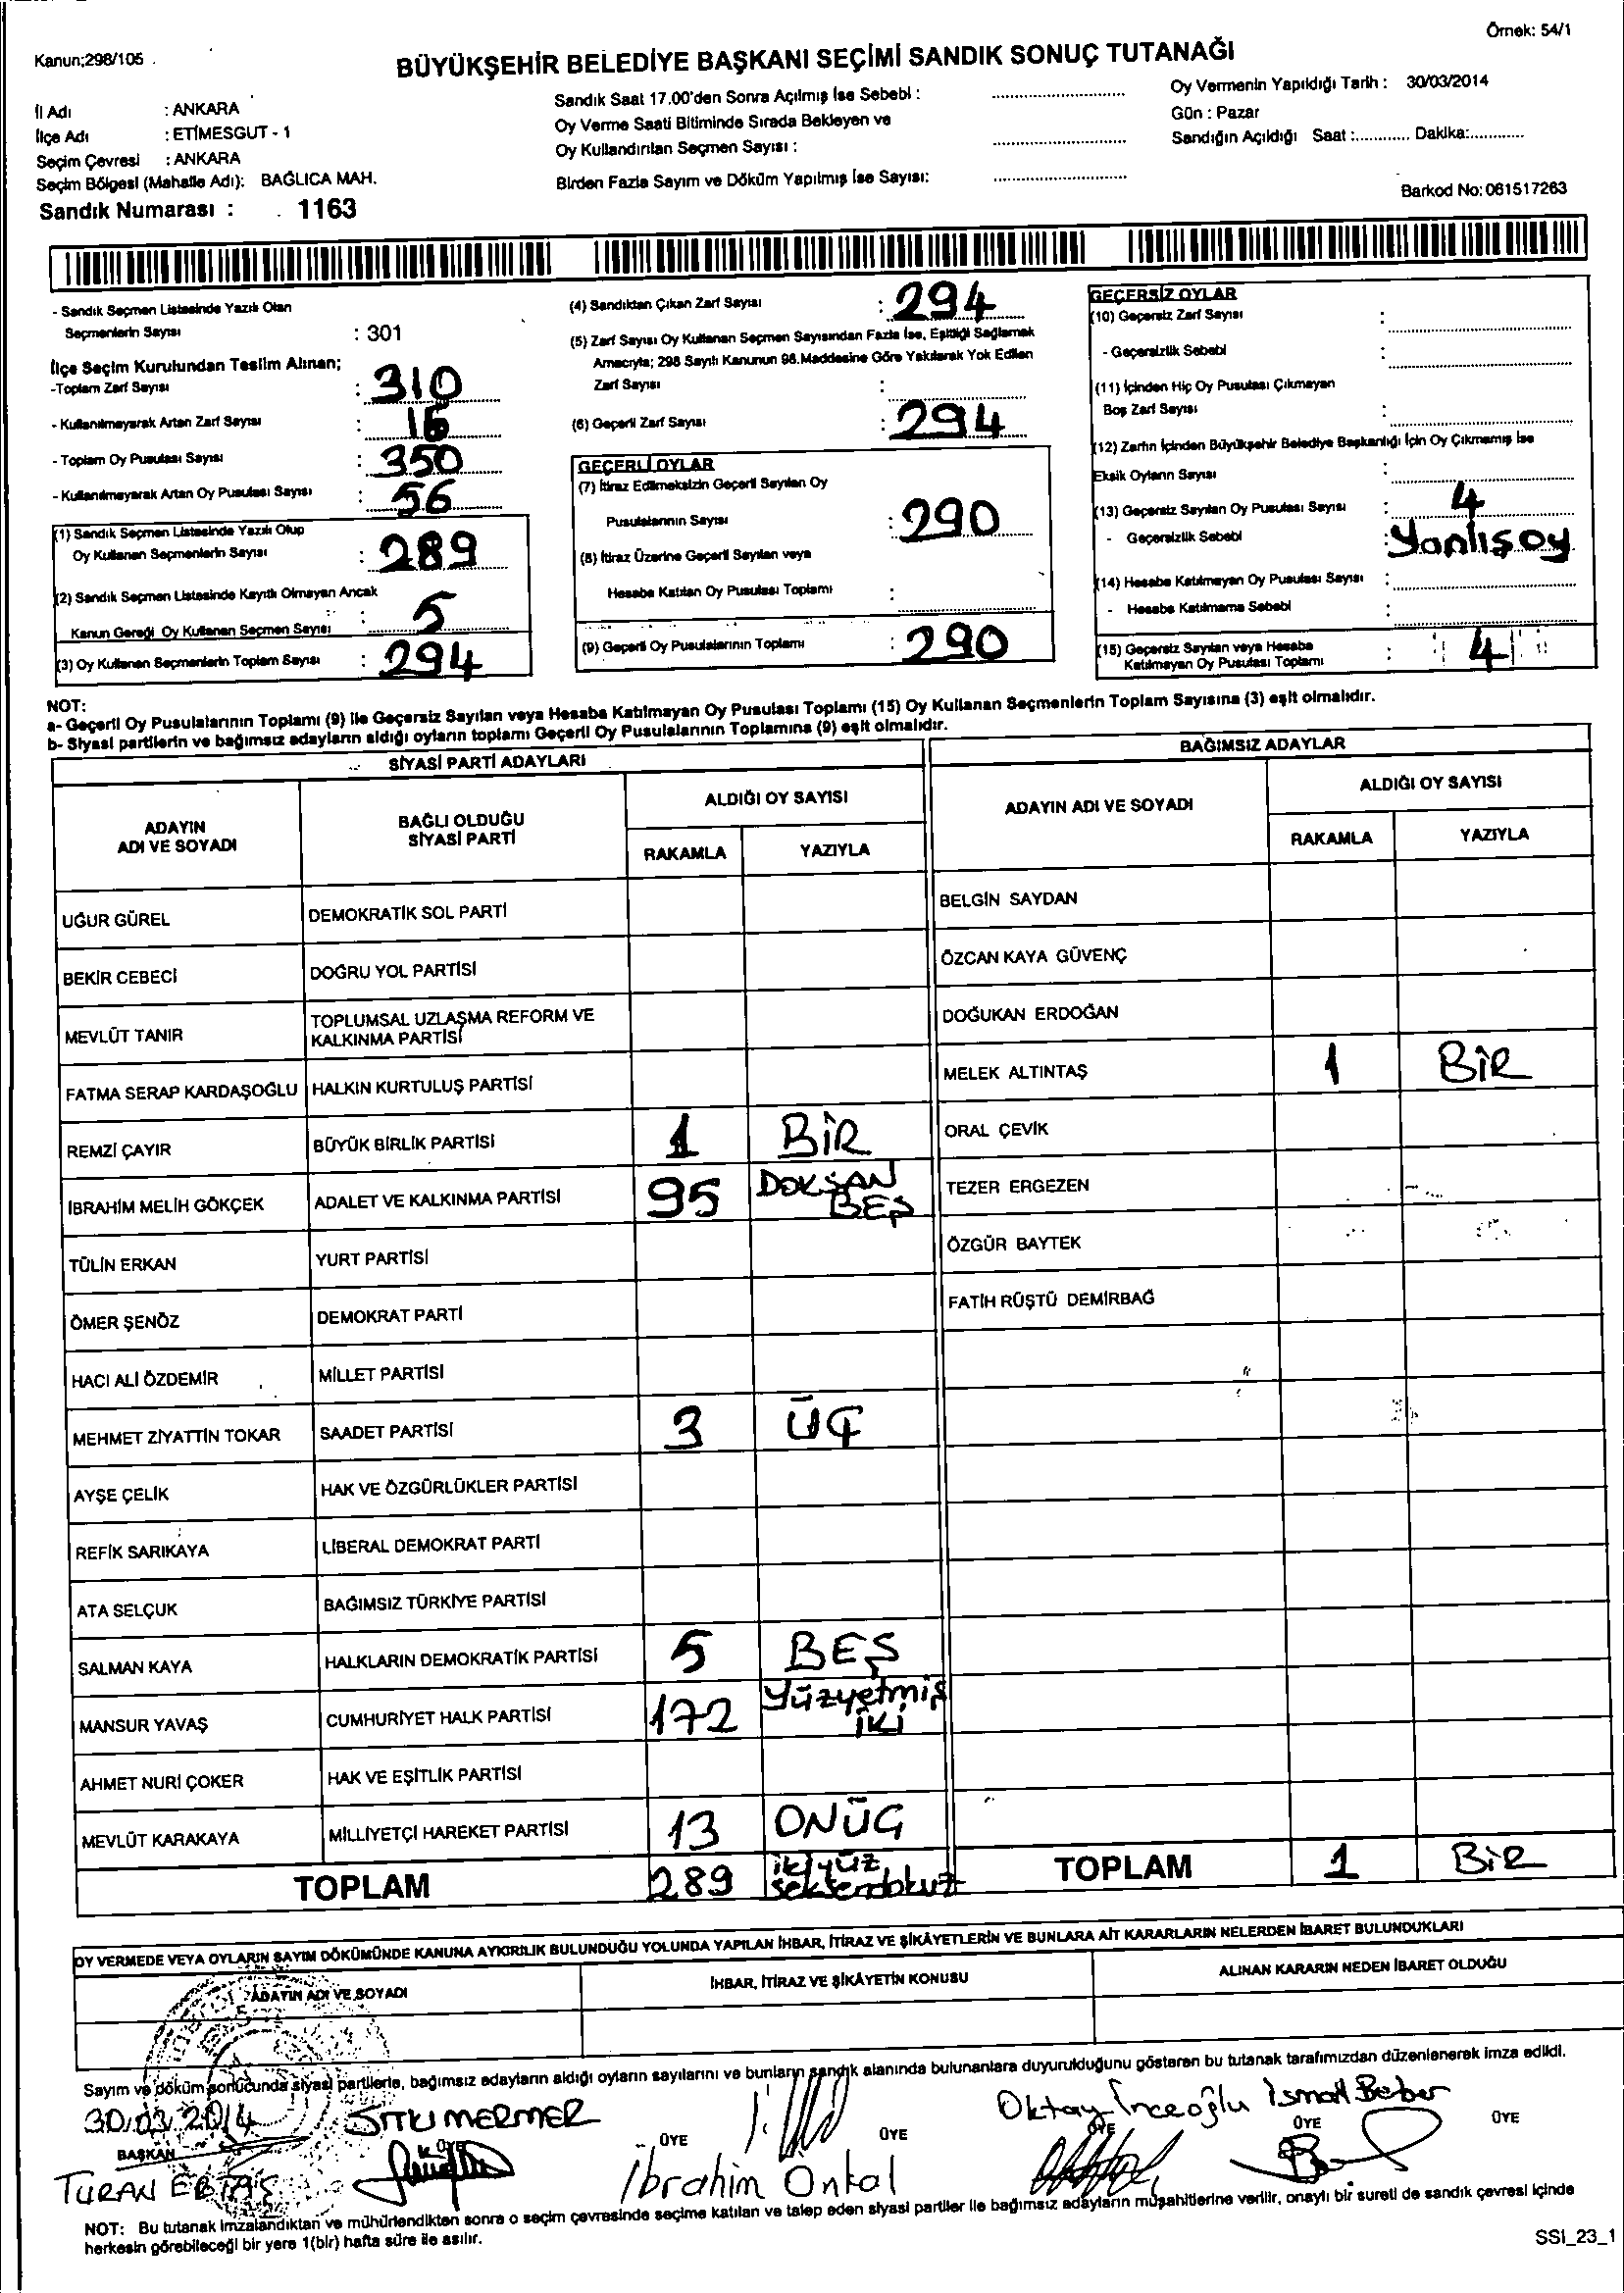 Örnek: 54/1
Kanun;298/105
BÜYÜKŞEHİR BELEDİYE BAŞKANI SEÇİMİ SANDIK SONUÇ TUTANAĞI
İl Adı : ANKARA
İlçe Adı : ETİMESGUT - 1
Seçim Çevresi : ANKARA
Seçim Bölgesi (Mahalle Adı): BAĞLICA MAH.
Sandık Numarası : 1163
Sandık Saat 17.00'den Sonra Açılmış İse Sebebi :
Oy Verme Saati Bitiminde Sırada Bekleyen ve
Oy Kullandırılan Seçmen Sayısı :
Birden Fazla Sayım ve Döküm Yapılmış İse Sayısı:
Oy Vermenin Yapıldığı Tarih : 30/03/2014
Gün : Pazar
Sandığın Açıldığı Saat :............ Dakika:............
Barkod No: 061517263
- Sandık Seçmen Listesinde Yazılı Olan
Seçmenlerin Sayısı : 301
İlçe Seçim Kurulundan Teslim Alınan;
-Toplam Zarf Sayısı : 310
- Kullanılmayarak Artan Zarf Sayısı : 16
- Toplam Oy Pusulası Sayısı : 350
- Kullanılmayarak Artan Oy Pusulası Sayısı : 56
(1) Sandık Seçmen Listesinde Yazılı Olup
Oy Kullanan Seçmenlerin Sayısı : 289
(2) Sandık Seçmen Listesinde Kayıtlı Olmayan Ancak
Kanun Gereği Oy Kullanan Seçmen Sayısı : 5
(3) Oy Kullanan Seçmenlerin Toplam Sayısı : 294
(4) Sandıktan Çıkan Zarf Sayısı : 294
(5) Zarf Sayısı Oy Kullanan Seçmen Sayısından Fazla İse, Eşitliği Sağlamak
Amacıyla; 298 Sayılı Kanunun 98.Maddesine Göre Yakılarak Yok Edilen
Zarf Sayısı :
(6) Geçerli Zarf Sayısı : 294
GEÇERLİ OYLAR
(7) İtiraz Edilmeksizin Geçerli Sayılan Oy
Pusulalarının Sayısı : 290
(8) İtiraz Üzerine Geçerli Sayılan veya
Hesaba Katılan Oy Pusulası Toplamı :
(9) Geçerli Oy Pusulalarının Toplamı : 290
GEÇERSİZ OYLAR
(10) Geçersiz Zarf Sayısı :
- Geçersizlik Sebebi :
(11) İçinden Hiç Oy Pusulası Çıkmayan
Boş Zarf Sayısı :
(12) Zarfın İçinden Büyükşehir Belediye Başkanlığı İçin Oy Çıkmamış İse
Eksik Oyların Sayısı :
(13) Geçersiz Sayılan Oy Pusulası Sayısı : 4
- Geçersizlik Sebebi : Yanlış oy
(14) Hesaba Katılmayan Oy Pusulası Sayısı :
- Hesaba Katılmama Sebebi :
(15) Geçersiz Sayılan veya Hesaba
Katılmayan Oy Pusulası Toplamı : 4
NOT:
a- Geçerli Oy Pusulalarının Toplamı (9) ile Geçersiz Sayılan veya Hesaba Katılmayan Oy Pusulası Toplamı (15) Oy Kullanan Seçmenlerin Toplam Sayısına (3) eşit olmalıdır.
b- Siyasi partilerin ve bağımsız adayların aldığı oyların toplamı Geçerli Oy Pusulalarının Toplamına (9) eşit olmalıdır.
SİYASİ PARTİ ADAYLARI
ADAYIN ADI VE SOYADI
BAĞLI OLDUĞU SİYASİ PARTİ
ALDIĞI OY SAYISI
RAKAMLA YAZIYLA
UĞUR GÜREL DEMOKRATİK SOL PARTİ
BEKİR CEBECİ DOĞRU YOL PARTİSİ
MEVLÜT TANIR TOPLUMSAL UZLAŞMA REFORM VE KALKINMA PARTİSİ
FATMA SERAP KARDAŞOĞLU HALKIN KURTULUŞ PARTİSİ
REMZİ ÇAYIR BÜYÜK BİRLİK PARTİSİ 1 BİR
İBRAHİM MELİH GÖKÇEK ADALET VE KALKINMA PARTİSİ 95 DOKSAN BEŞ
TÜLİN ERKAN YURT PARTİSİ
ÖMER ŞENÖZ DEMOKRAT PARTİ
HACI ALİ ÖZDEMİR MİLLET PARTİSİ
MEHMET ZİYATTİN TOKAR SAADET PARTİSİ 3 ÜÇ
AYŞE ÇELİK HAK VE ÖZGÜRLÜKLER PARTİSİ
REFİK SARIKAYA LİBERAL DEMOKRAT PARTİ
ATA SELÇUK BAĞIMSIZ TÜRKİYE PARTİSİ
SALMAN KAYA HALKLARIN DEMOKRATİK PARTİSİ 5 BEŞ
MANSUR YAVAŞ CUMHURİYET HALK PARTİSİ 172 Yüzyetmiş iki
AHMET NURİ ÇOKER HAK VE EŞİTLİK PARTİSİ
MEVLÜT KARAKAYA MİLLİYETÇİ HAREKET PARTİSİ 13 ONÜÇ
TOPLAM 289 ikiyüz seksendokuz
BAĞIMSIZ ADAYLAR
ADAYIN ADI VE SOYADI
ALDIĞI OY SAYISI
RAKAMLA YAZIYLA
BELGİN SAYDAN
ÖZCAN KAYA GÜVENÇ
DOĞUKAN ERDOĞAN
MELEK ALTINTAŞ 1 BİR
ORAL ÇEVİK
TEZER ERGEZEN
ÖZGÜR BAYTEK
FATİH RÜŞTÜ DEMİRBAĞ
TOPLAM 1 BİR
OY VERMEDE VEYA OYLARIN SAYIM DÖKÜMÜNDE KANUNA AYKIRILIK BULUNDUĞU YOLUNDA YAPILAN İHBAR, İTİRAZ VE ŞİKÂYETLERİN VE BUNLARA AİT KARARLARIN NELERDEN İBARET BULUNDUKLARI
ADAYIN ADI VE SOYADI
İHBAR, İTİRAZ VE ŞİKÂYETİN KONUSU
ALINAN KARARIN NEDEN İBARET OLDUĞU
Sayım ve döküm sonucunda siyasi partilerle, bağımsız adayların aldığı oyların sayılarını ve bunların sandık alanında bulunanlara duyurulduğunu gösteren bu tutanak tarafımızdan düzenlenerek imza edildi.
30.03.2014
SITKI MERMER
Oktay İnceoğlu
İsmail Beber
BAŞKAN ÜYE ÜYE ÜYE ÜYE ÜYE ÜYE
TURAN
İbrahim Önkal
NOT: Bu tutanak imzalandıktan ve mühürlendikten sonra o seçim çevresinde seçime katılan ve talep eden siyasi partiler ile bağımsız adayların müşahitlerine verilir, onaylı bir sureti de sandık çevresi içinde
herkesin görebileceği bir yere 1(bir) hafta süre ile asılır.
SSI_23_1